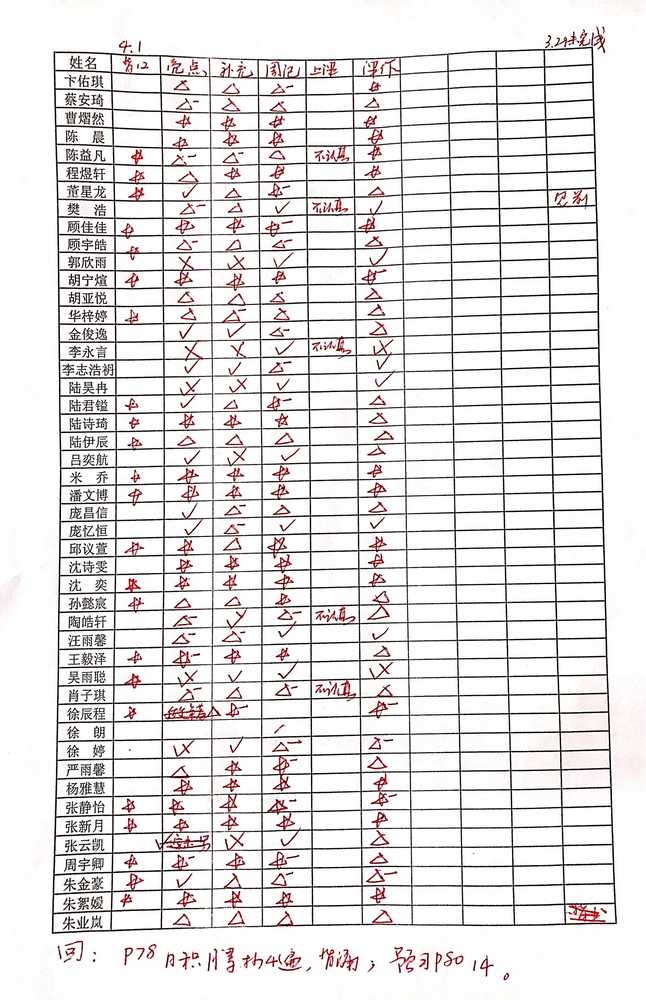 4.1 3.24未完成
姓名 背12 亮点 补充 周记 上课 课作
卞佑琪 △ △ △- ☆
蔡安琦 △- △ △ △
曹熠然 ☆ ☆ ☆ ☆
陈晨 ☆ ☆ ☆ ☆
陈益凡 ☆ △- △- △ 不认真 ☆
程煜轩 ☆ △ ☆ ☆ ☆
董星龙 ☆ ✓ △ ☆- △
樊浩 △- △ ✓ 不认真 ✓
顾佳佳 ☆ ☆ ☆ ☆- ☆
顾宇皓 ☆ △- △ △- △
郭欣雨 ✓ ✓
胡宁煊 ☆ ☆ ☆ ☆ ☆-
胡亚悦 △ △ △ △
华梓婷 ☆ △ △- △ △
金俊逸 ✓ ✓ △- △
李永言 ✓ 不认真
李志浩礽 ✓ ✓ △- ✓
陆昊冉 ✓ ✓
陆君镒 ☆ ✓ △ ☆- △
陆诗琦 ☆ ☆ ☆ ☆ △
陆伊辰 ☆ △ △ △ △
吕奕航 ✓ ✓ △
米乔 ☆ ☆ ☆ ☆ ☆
潘文博 ☆ ☆ ☆ ☆ ☆
庞昌信 ✓ △- △ △
庞忆恒 ✓ △- ✓ ✓
邱议萱 ☆ ☆ △ ☆ ☆
沈诗雯 ☆ ☆ ☆ ☆
沈奕 ☆ ☆ ☆ ☆ ☆
孙懿宸 ☆ △ △ ☆ △
陶皓轩 △- ✓ △- 不认真 △
汪雨馨 △- △- ✓ ✓
王毅泽 ☆ ☆- ☆ ☆ △
吴雨聪 ☆ ✓ ✓
肖子琪 △- △ △- 不认真 △
徐辰程 ☆ △ ☆- ☆-
徐朗 ✓
徐婷 ✓ △- △-
严雨馨 △ ☆ ☆- △
杨雅慧 ☆ ☆ ☆ ☆
张静怡 ☆ ☆ ☆ ☆- ☆-
张新月 ☆ ☆ ☆ ☆ ☆
张云凯 ✓ ✓ △
周宇卿 ☆ ☆- ☆ ☆- △
朱金豪 ☆ ✓ △ △- △-
朱絮嫒 ☆ ☆ ☆ ☆ ☆
朱业岚 △ △ △ △
回: P78日积月累抄4遍,背诵;预习P80 14。